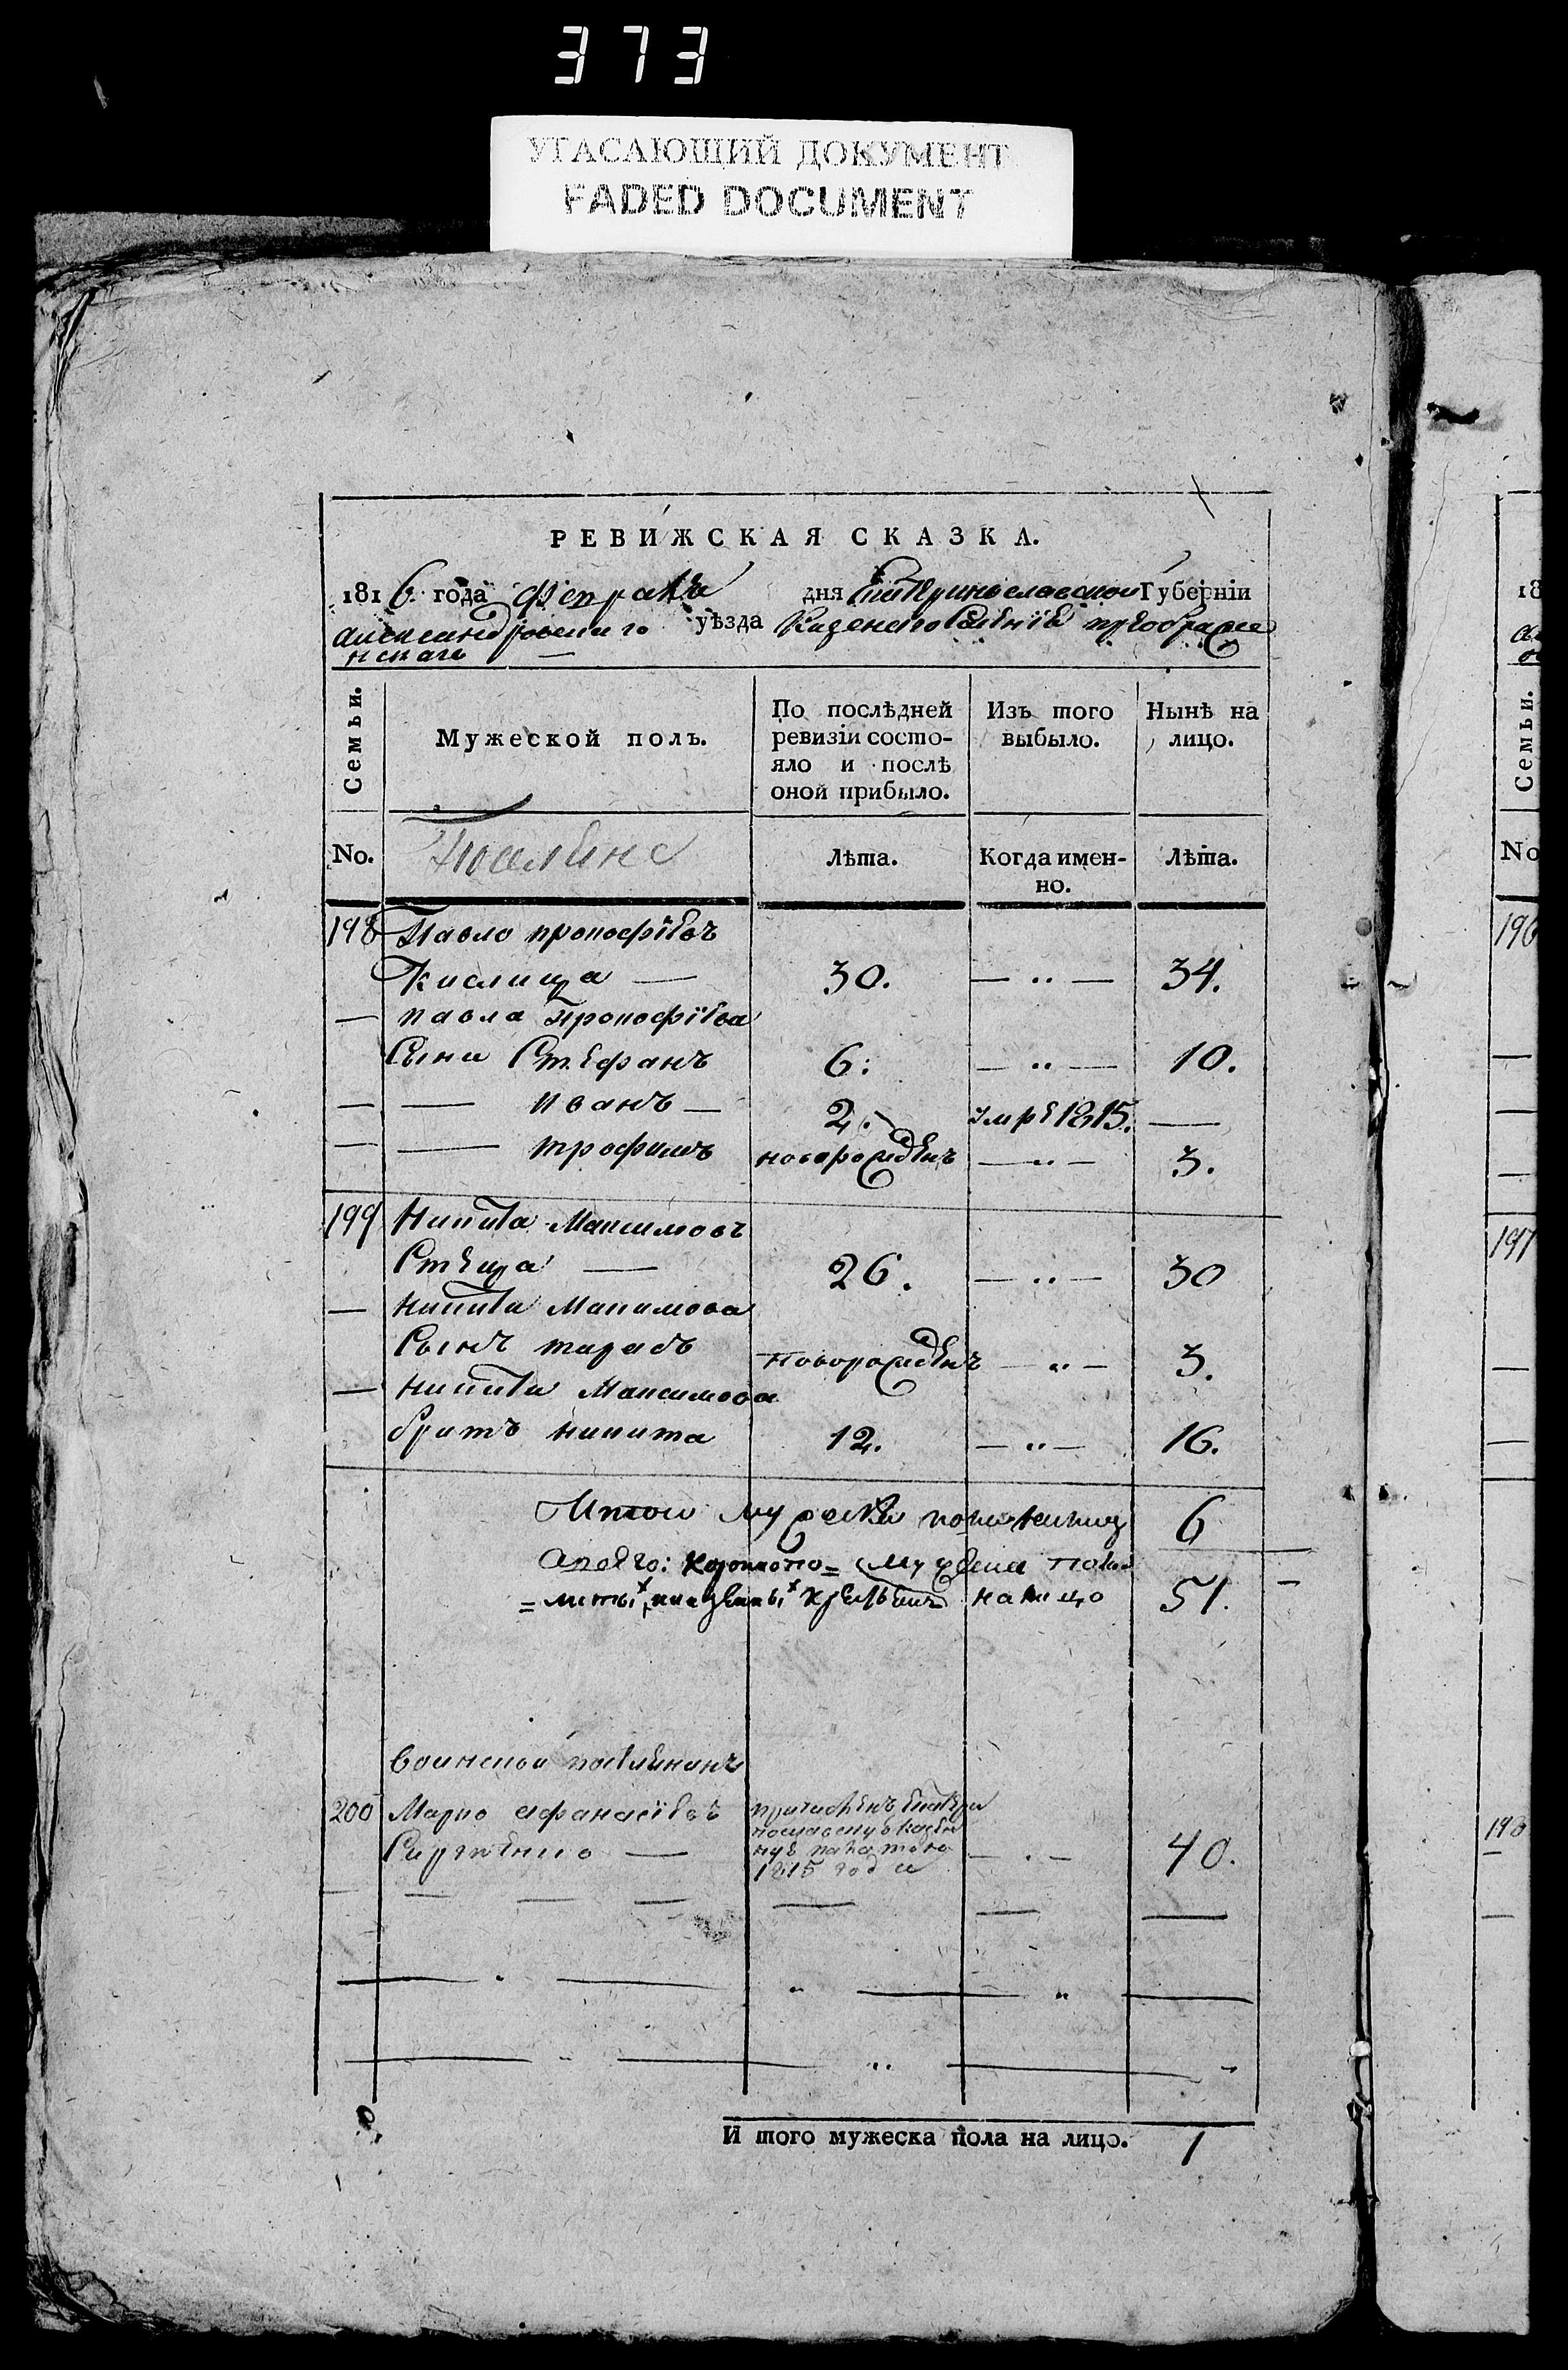 373
УГАСАЮЩИЙ ДОКУМЕНТ
FADED DOCUMENT
РЕВИЖСКАЯ СКАЗКА.
1816 года февраля дня Екатеринославской Губерніи
александровскаго уѣзда Казеннаго Селенія преображе
нскаго
Семьи.
Мужеской полъ.
По послѣдней
ревизіи состо-
яло и послѣ
оной прибыло.
Изъ того
выбыло.
Нынѣ на
лицо.
No.
Лѣта.
Когда имен-
но.
Лѣта.
198 Павло прокофіевъ
Кислица — 30. — „ — 34.
— павла Прокофіева
Сыни Стефанъ 6: — „ — 10.
— — иванъ — 2. умре 1815. —
— — трофимъ новорожденъ — „ — 3.
199 Никита Максимовъ
Стеца — 26. — „ — 30
— никиты Максимова
Сынъ тарасъ новорожденъ — „ — 3.
— никиты Максимова
братъ никита 12. — „ — 16.
Итого мужеска пола налицо 6
мужеска пола
налицо 51.
воинской поселянинъ
200 Марко афанасіевъ причисленъ
Сергіенко — — . — 40.
1815 года
И того мужеска пола на лицо. 1
18
Семьи.
No
196
197
198